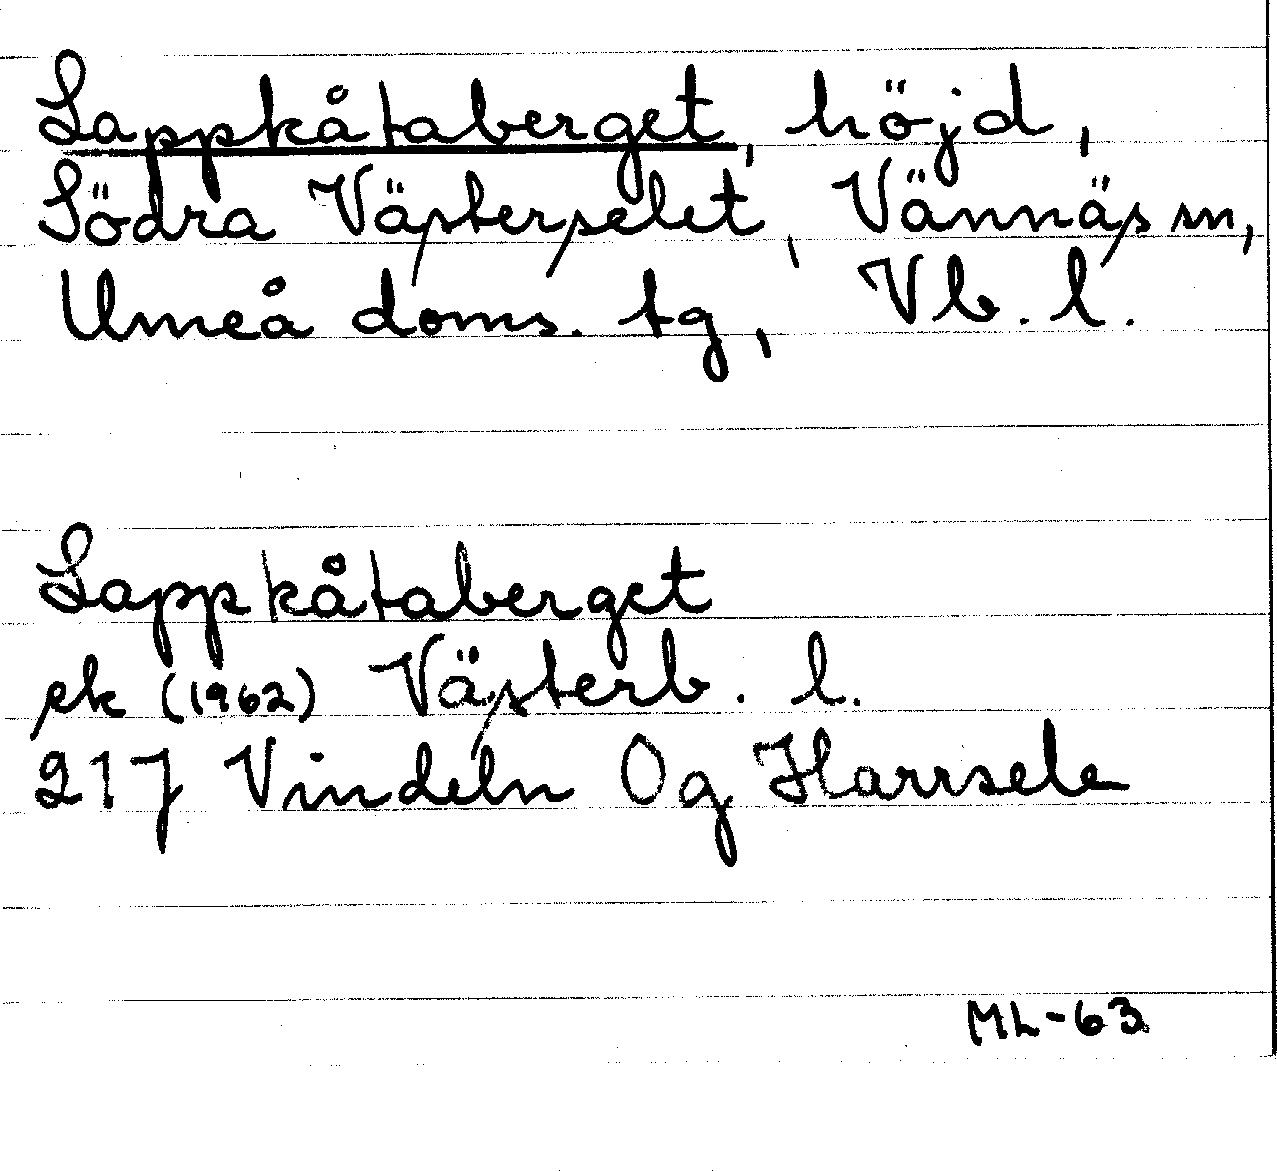 Lappkåtaberget, höjd,
Södra Västerselet, Vännäs sn,
Umeå doms. tg, Vb. l.
Lappkåtaberget
ek (1962) Västerb. l.
21J Vindeln Og Harrsele
ML-63